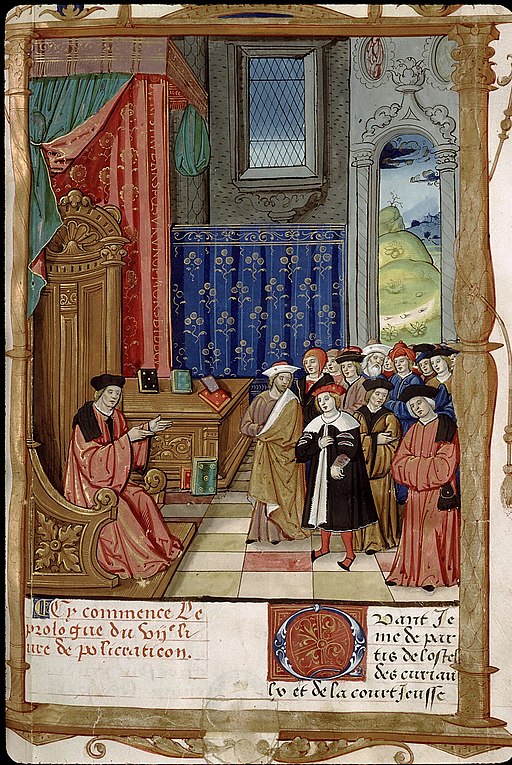 Cy commence Le
prologue du vijᵉ li
ure de policraticon.
Quant Je
me de par
tis de lostel
des curiau
lx et de la court Jeusse